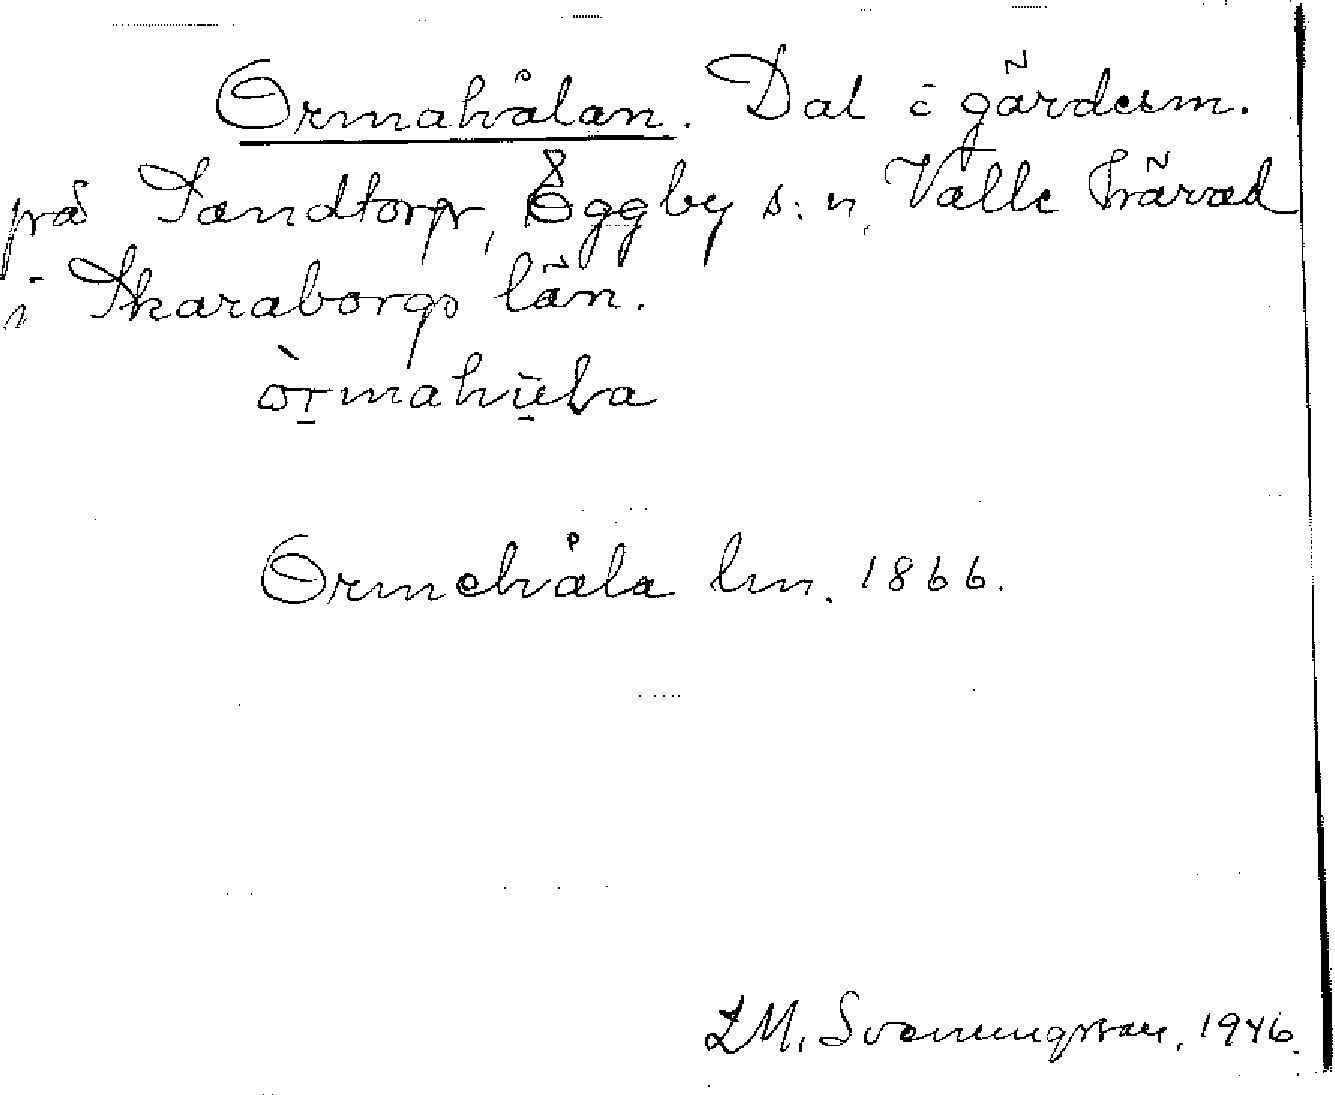 Ormahålan. Dal i gärdesm.
på Sandtorp, Eggby s:n, Valle härad
i Skaraborgs län.
òrmahu̱la
Ormehåla lm. 1866.
L M. Svenungsson. 1946.